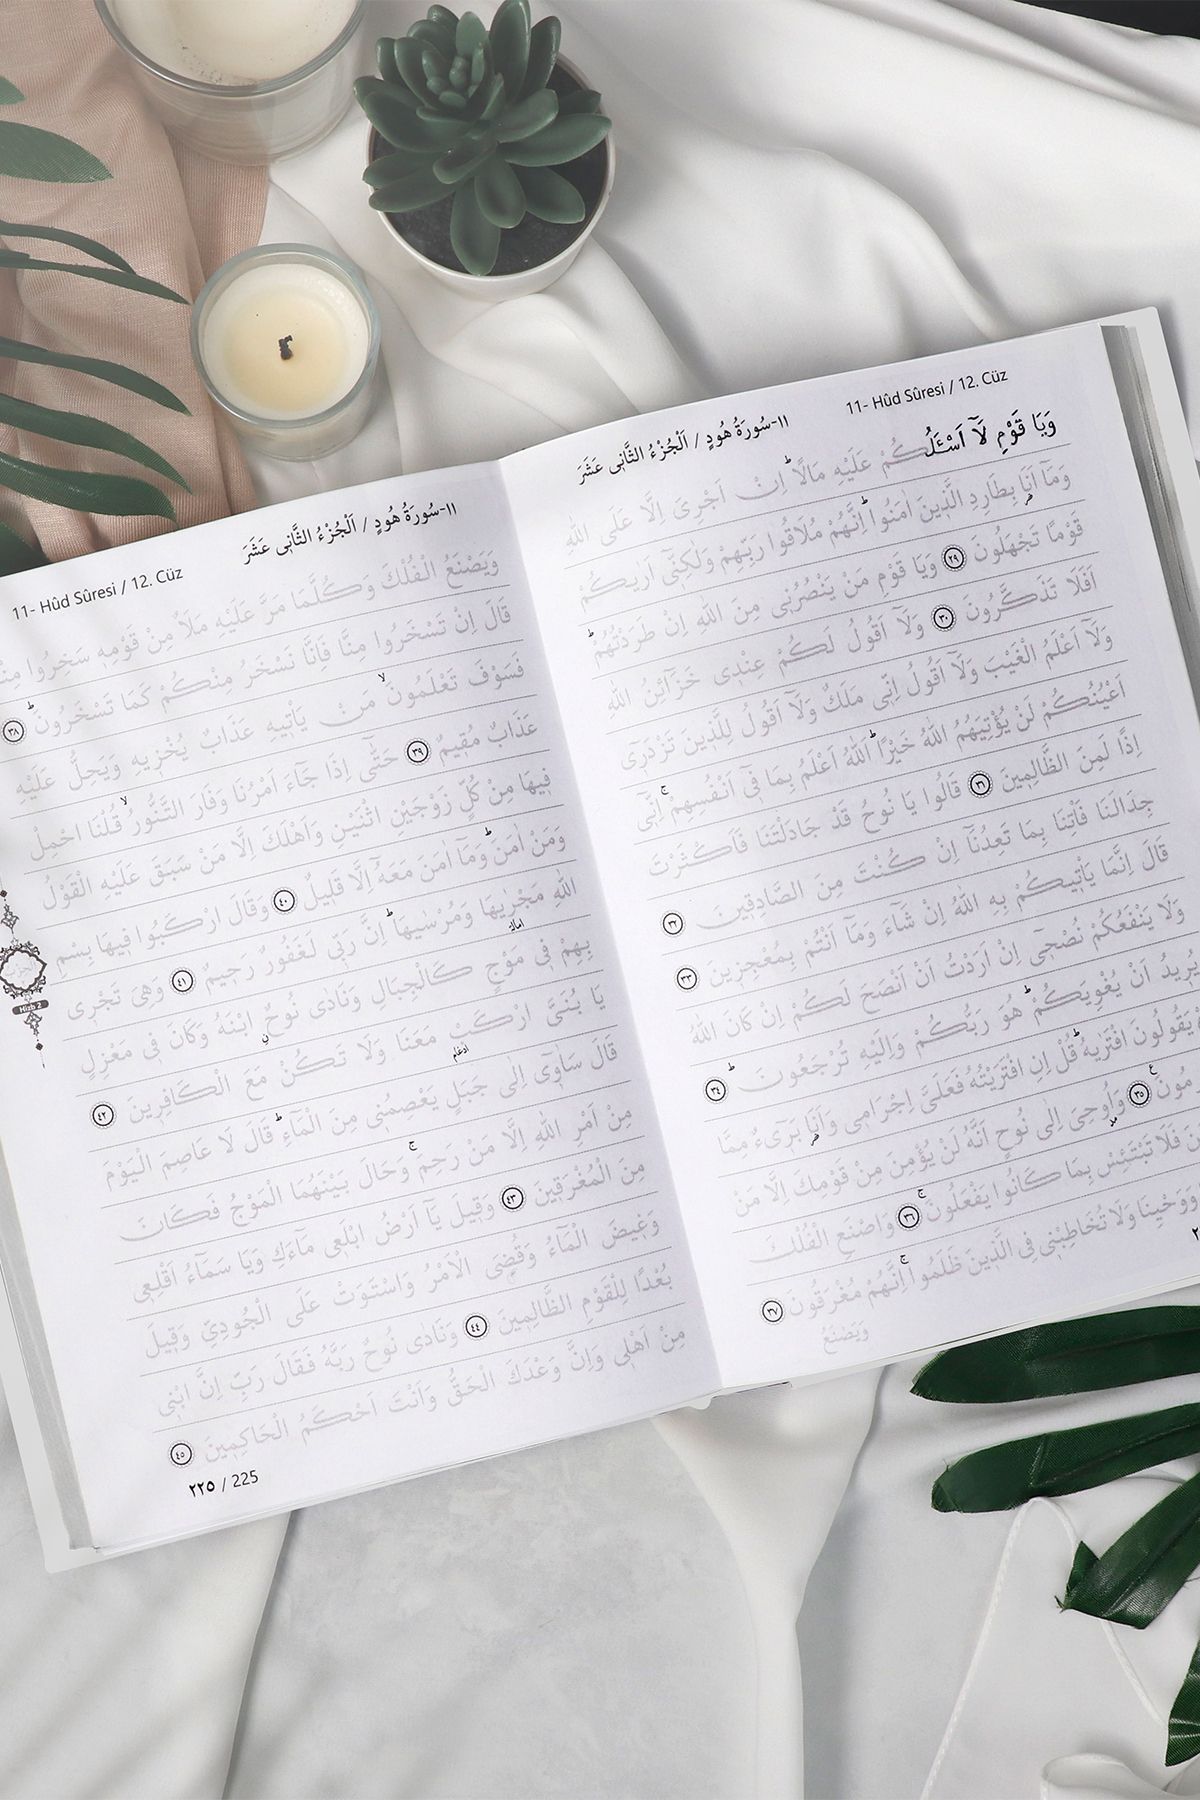 11- Hûd Sûresi / 12. Cüz
١١-سُورَةُ هُودٍ / اَلْجُزْءُ الثَّانِى عَشَرَ
وَيَا قَوْمِ لَٓا اَسْـَٔلُكُمْ عَلَيْهِ مَالًاۜ اِنْ اَجْرِىَ اِلَّا عَلَى اللّٰهِ
وَمَٓا اَنَا۬ بِطَارِدِ الَّذ۪ينَ اٰمَنُواۜ اِنَّهُمْ مُلَاقُوا رَبِّهِمْ وَلٰكِنّ۪ٓى اَرٰيكُمْ
قَوْمًا تَجْهَلُونَ ﴿٢٩﴾ وَيَا قَوْمِ مَنْ يَنْصُرُن۪ى مِنَ اللّٰهِ اِنْ طَرَدْتُهُمْۜ
اَفَلَا تَذَكَّرُونَ ﴿٣٠﴾ وَلَٓا اَقُولُ لَكُمْ عِنْد۪ى خَزَٓائِنُ اللّٰهِ
وَلَٓا اَعْلَمُ الْغَيْبَ وَلَٓا اَقُولُ اِنّ۪ى مَلَكٌ وَلَٓا اَقُولُ لِلَّذ۪ينَ تَزْدَر۪ٓى
اَعْيُنُكُمْ لَنْ يُؤْتِيَهُمُ اللّٰهُ خَيْرًاۜ اَللّٰهُ اَعْلَمُ بِمَا ف۪ٓى اَنْفُسِهِمْۚ اِنّ۪ٓى
اِذًا لَمِنَ الظَّالِم۪ينَ ﴿٣١﴾ قَالُوا يَا نُوحُ قَدْ جَادَلْتَنَا فَاَكْثَرْتَ
جِدَالَنَا فَأْتِنَا بِمَا تَعِدُنَٓا اِنْ كُنْتَ مِنَ الصَّادِق۪ينَ ﴿٣٢﴾
قَالَ اِنَّمَا يَأْت۪يكُمْ بِهِ اللّٰهُ اِنْ شَٓاءَ وَمَٓا اَنْتُمْ بِمُعْجِز۪ينَ ﴿٣٣﴾
وَلَا يَنْفَعُكُمْ نُصْح۪ٓى اِنْ اَرَدْتُ اَنْ اَنْصَحَ لَكُمْ اِنْ كَانَ اللّٰهُ
يُر۪يدُ اَنْ يُغْوِيَكُمْۜ هُوَ رَبُّكُمْ وَاِلَيْهِ تُرْجَعُونَۜ ﴿٣٤﴾
يَقُولُونَ افْتَرٰيهُۜ قُلْ اِنِ افْتَرَيْتُهُ فَعَلَىَّ اِجْرَام۪ى وَاَنَا۬ بَر۪ٓىءٌ مِمَّا
﴿٣٥﴾ وَاُو۫حِىَ اِلٰى نُوحٍ اَنَّهُ لَنْ يُؤْمِنَ مِنْ قَوْمِكَ اِلَّا مَنْ
فَلَا تَبْتَئِسْ بِمَا كَانُوا يَفْعَلُونَۚ ﴿٣٦﴾ وَاصْنَعِ الْفُلْكَ
وَوَحْيِنَا وَلَا تُخَاطِبْن۪ى فِى الَّذ۪ينَ ظَلَمُواۚ اِنَّهُمْ مُغْرَقُونَ ﴿٣٧﴾
وَيَصْنَعُ
١١-سُورَةُ هُودٍ / اَلْجُزْءُ الثَّانِى عَشَرَ
11- Hûd Sûresi / 12. Cüz
وَيَصْنَعُ الْفُلْكَ وَكُلَّمَا مَرَّ عَلَيْهِ مَلَأٌ مِنْ قَوْمِه۪ سَخِرُوا
قَالَ اِنْ تَسْخَرُوا مِنَّا فَاِنَّا نَسْخَرُ مِنْكُمْ كَمَا تَسْخَرُونَۜ ﴿٣٨﴾
فَسَوْفَ تَعْلَمُونَۙ مَنْ يَأْت۪يهِ عَذَابٌ يُخْز۪يهِ وَيَحِلُّ عَلَيْهِ
عَذَابٌ مُق۪يمٌ ﴿٣٩﴾ حَتّٰٓى اِذَا جَٓاءَ اَمْرُنَا وَفَارَ التَّنُّورُۙ قُلْنَا احْمِلْ
ف۪يهَا مِنْ كُلٍّ زَوْجَيْنِ اثْنَيْنِ وَاَهْلَكَ اِلَّا مَنْ سَبَقَ عَلَيْهِ الْقَوْلُ
وَمَنْ اٰمَنَۜ وَمَٓا اٰمَنَ مَعَهُٓ اِلَّا قَل۪يلٌ ﴿٤٠﴾ وَقَالَ ارْكَبُوا ف۪يهَا بِسْمِ
اللّٰهِ مَجْرٰۭيهَا وَمُرْسٰيهَاۜ اِنَّ رَبّ۪ى لَغَفُورٌ رَح۪يمٌ ﴿٤١﴾ وَهِىَ تَجْر۪ى
بِهِمْ ف۪ى مَوْجٍ كَالْجِبَالِ وَنَادٰى نُوحٌۨ ابْنَهُ وَكَانَ ف۪ى مَعْزِلٍ
يَا بُنَىَّ ارْكَبْ مَعَنَا وَلَا تَكُنْ مَعَ الْكَافِر۪ينَ ﴿٤٢﴾
قَالَ سَاٰو۪ٓى اِلٰى جَبَلٍ يَعْصِمُن۪ى مِنَ الْمَٓاءِۜ قَالَ لَا عَاصِمَ الْيَوْمَ
مِنْ اَمْرِ اللّٰهِ اِلَّا مَنْ رَحِمَۚ وَحَالَ بَيْنَهُمَا الْمَوْجُ فَكَانَ
مِنَ الْمُغْرَق۪ينَ ﴿٤٣﴾ وَق۪يلَ يَٓا اَرْضُ ابْلَع۪ى مَٓاءَكِ وَيَا سَمَٓاءُ اَقْلِع۪ى
وَغ۪يضَ الْمَٓاءُ وَقُضِىَ الْاَمْرُ وَاسْتَوَتْ عَلَى الْجُودِىِّ وَق۪يلَ
بُعْدًا لِلْقَوْمِ الظَّالِم۪ينَ ﴿٤٤﴾ وَنَادٰى نُوحٌ رَبَّهُ فَقَالَ رَبِّ اِنَّ ابْن۪ى
مِنْ اَهْل۪ى وَاِنَّ وَعْدَكَ الْحَقُّ وَاَنْتَ اَحْكَمُ الْحَاكِم۪ينَ ﴿٤٥﴾
٢٢٥ / 225